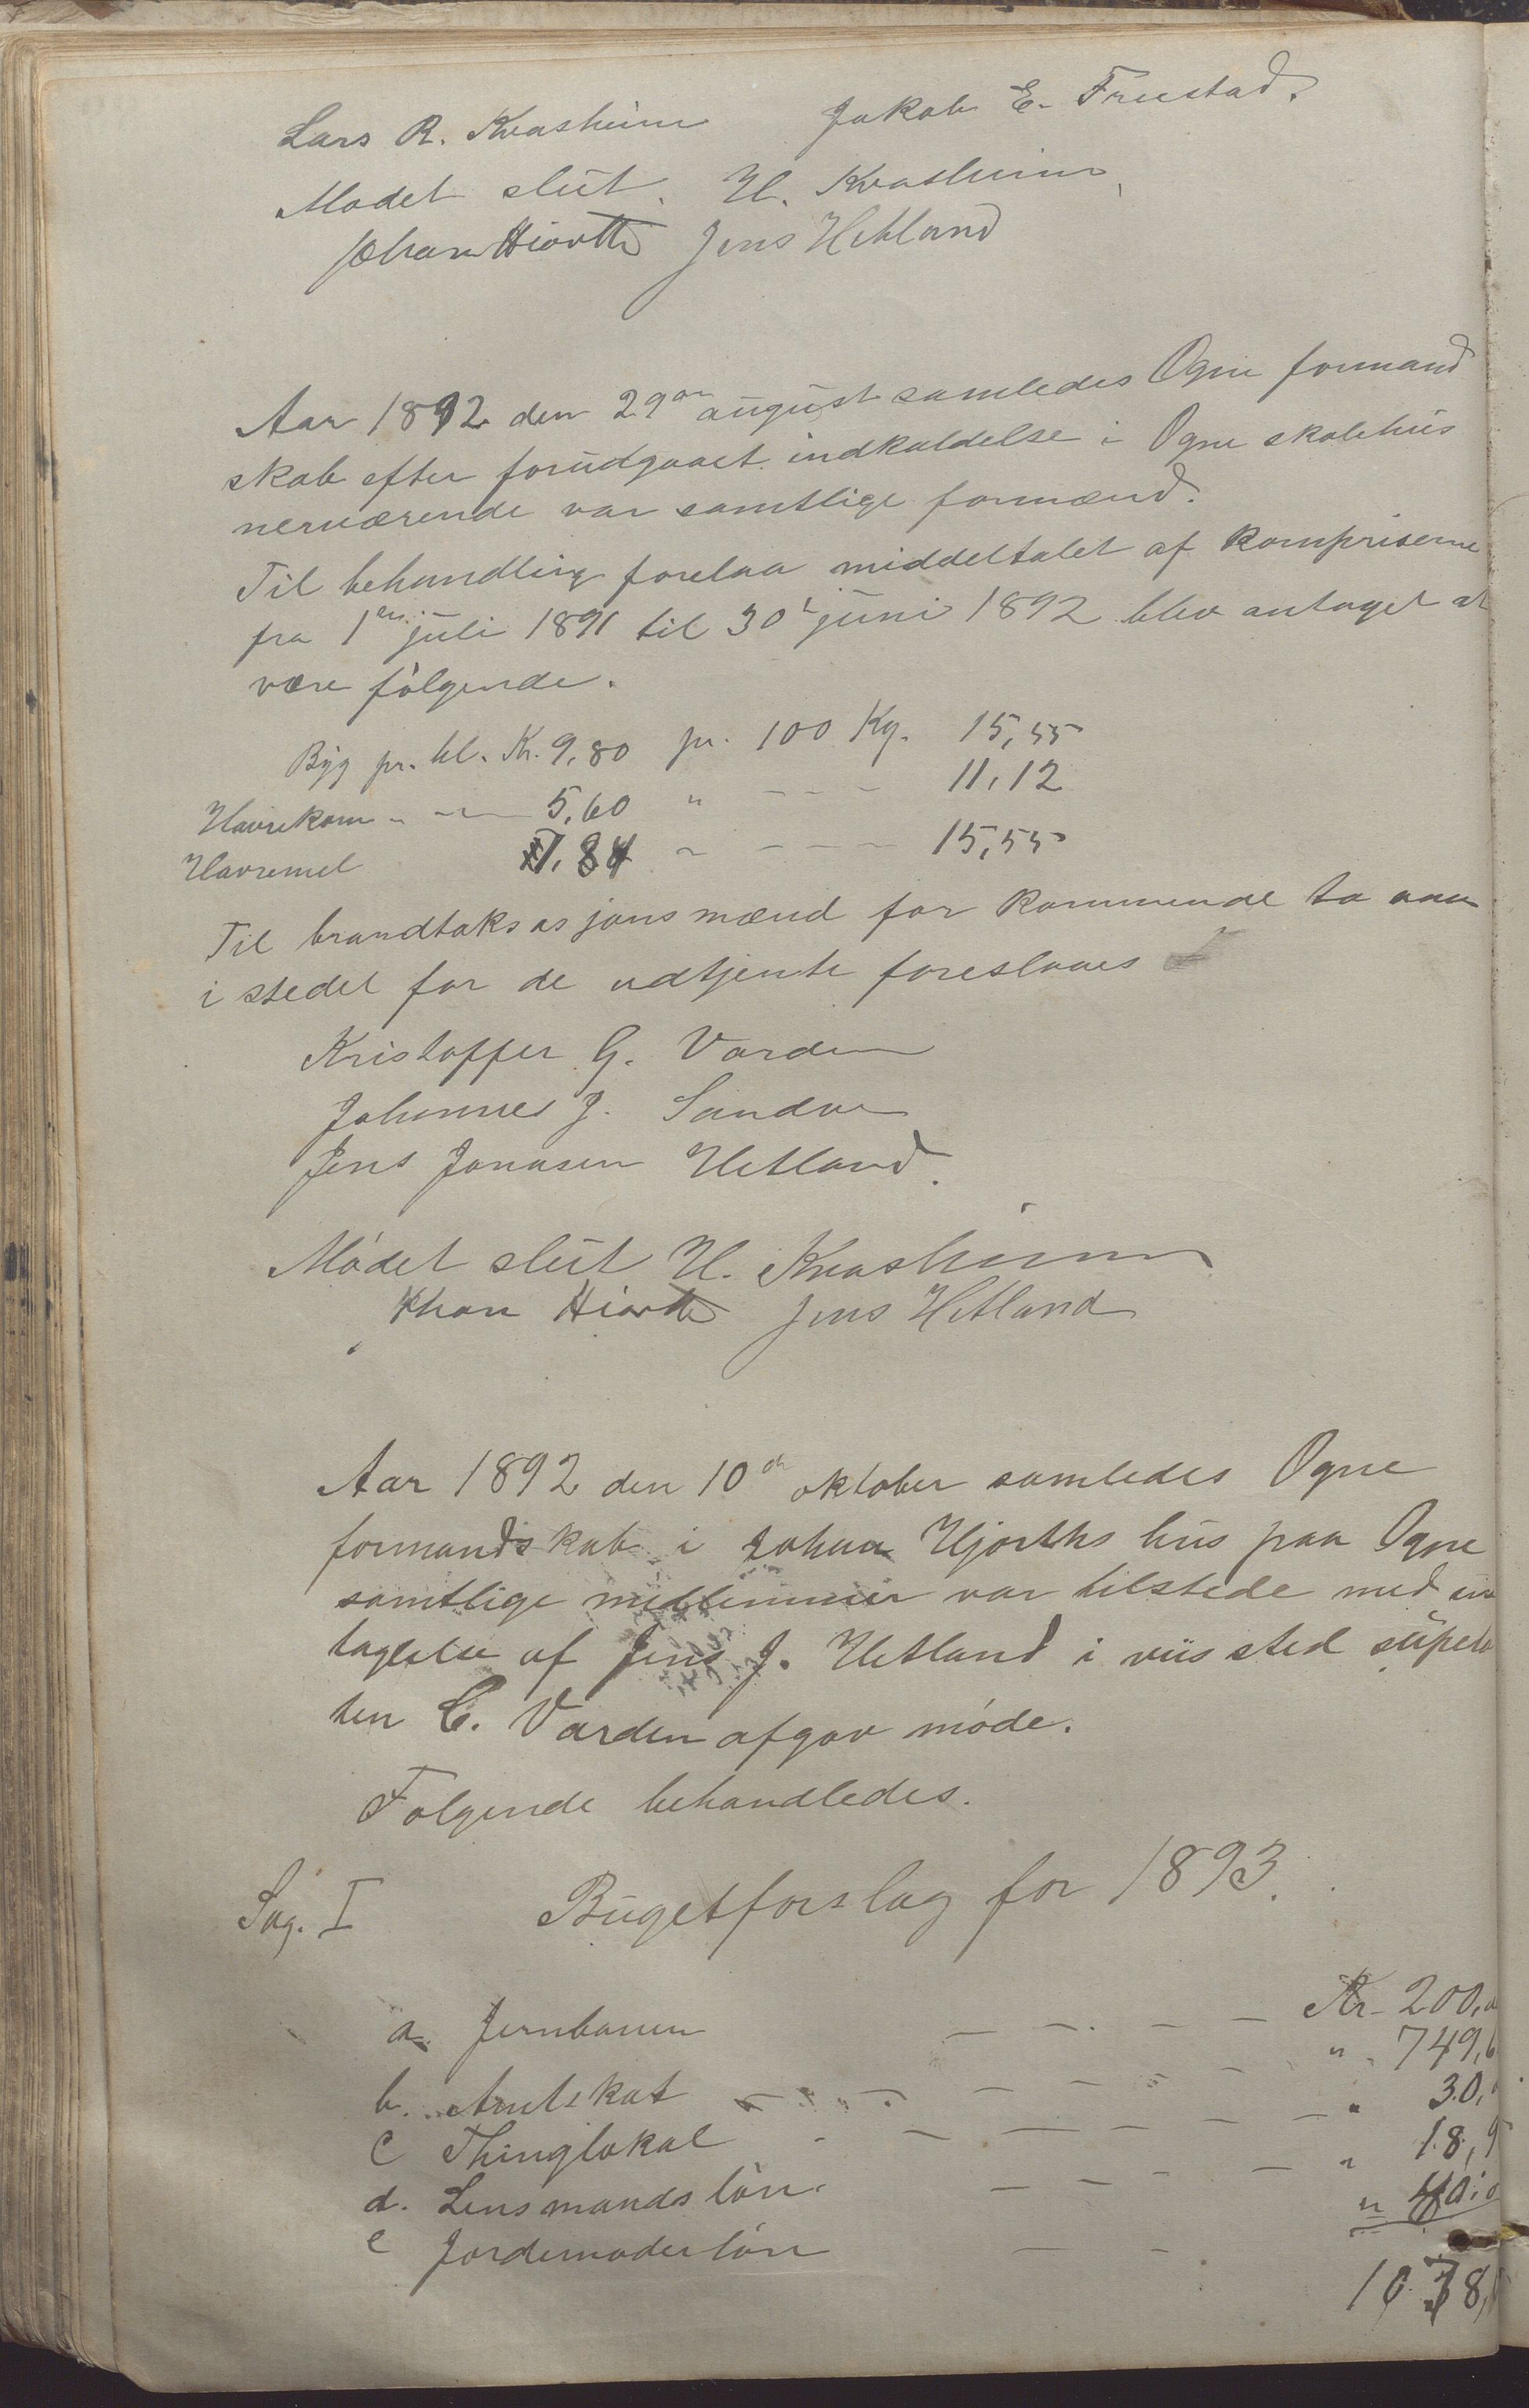 Lars R. Kvasheim Jakob E. Fruestad.
Mødet slut. H. Kvasheim
Johan Hiorth Jens Hetland
Aar 1892 den 29de august samledes Ogne formand
skab efter forudgaaet indkaldelse i Ogne skolehus
nerværende var samtlige formænd.
Til behandling forelaa middeltalet af kornpriserne
fra 1ste juli 1891 til 30te juni 1892 blev antaget at
være følgende.
Byg pr. hl. Kr. 9,80 pr. 100 Kg. 15,55
Havrekorn " — 5,60 " - - - 11,12
Havremel 7,84 " - - - 15,55
Til brandtaksasjonsmænd for kommende to aar
i stedet for de udtjente foreslaaes
Kristoffer G. Varden
Johannes J. Sandve
Jens Jonasen Hetland.
Mødet slut H. Kvasheim
Johan Hiorth Jens Hetland
Aar 1892 den 10de oktober samledes Ogne
formandskab i Johan Hjorths hus paa Ogne
samtlige medlemmer var tilstede med und
tagelse af Jens J. Hetland i viis sted suplean
ten C. Varden afgav møde.
Følgende behandledes.
Sag. I Bugetforslag for 1893.
a. Jernbanen — — — — Kr. 200,
b. Amtskat — — — — " 749,
c Thinglokal — — — — " 30,
d. Lensmandsløn. — — — " 18,
e Jordemoderløn — — " 40,
1038,